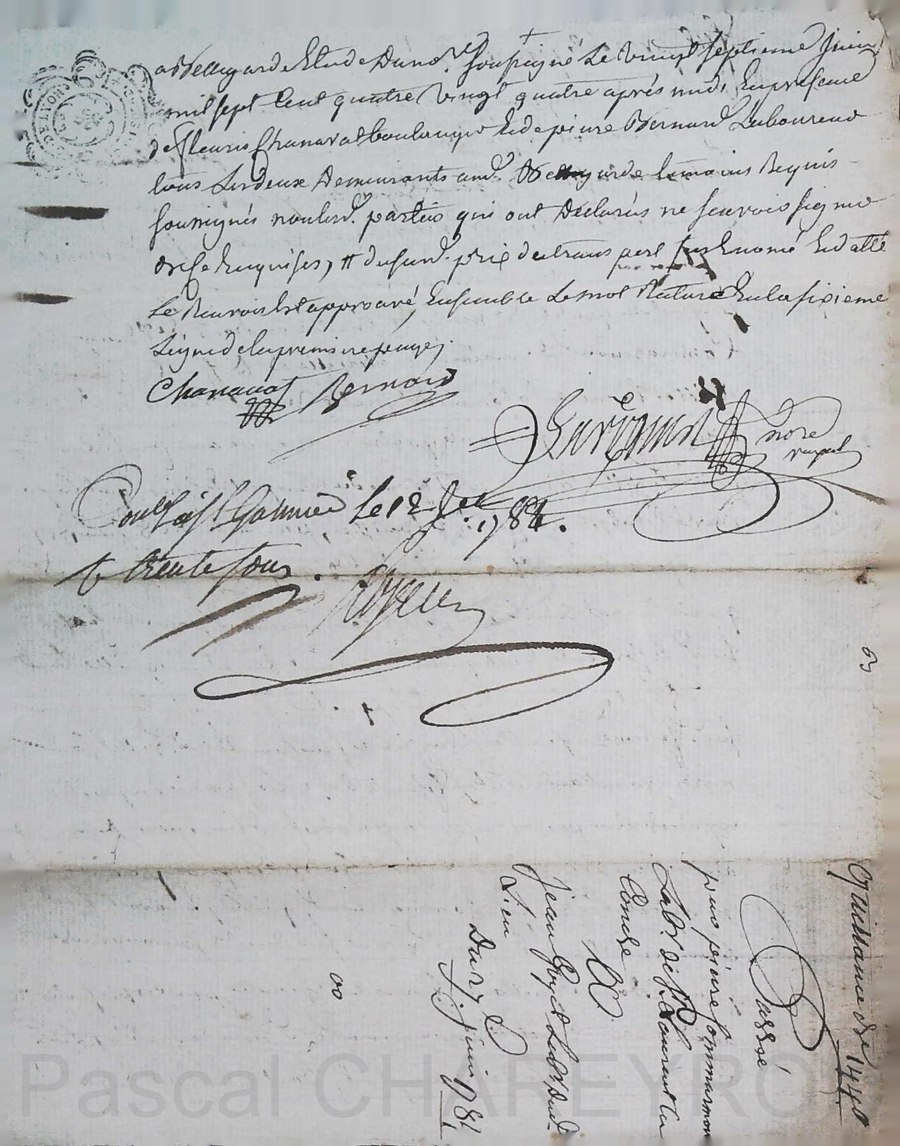 a Bellegarde Etude du no.re soussigné Le vingt septieme juin
mil sept Cent quatre vingt quatre après midi, En presence
de fleury Chanavat boulanger Et de pierre Bernard Laboureur
tous Les deux demeurants aud. Bellegarde temoins Requis
soussignés non Les d. parties qui ont declarés ne scavoir signer
de ce Enquises, du sud. prix
Le Renvoi Est approuvé, Ensemble Le mot Nature En la sixieme
Ligne de la premiere page,
Chanavat Bernard
no.re
royal
Con.lé à St Galmier Le 12 1784.
trente sous.
63
Quittance de 144#
Passé
par pierre
Lab.r de St Laurent la
Conche
A
Jean Lab.r dud.
Lieu
Du 27
juin 1784
00
Pascal CHAREYRO